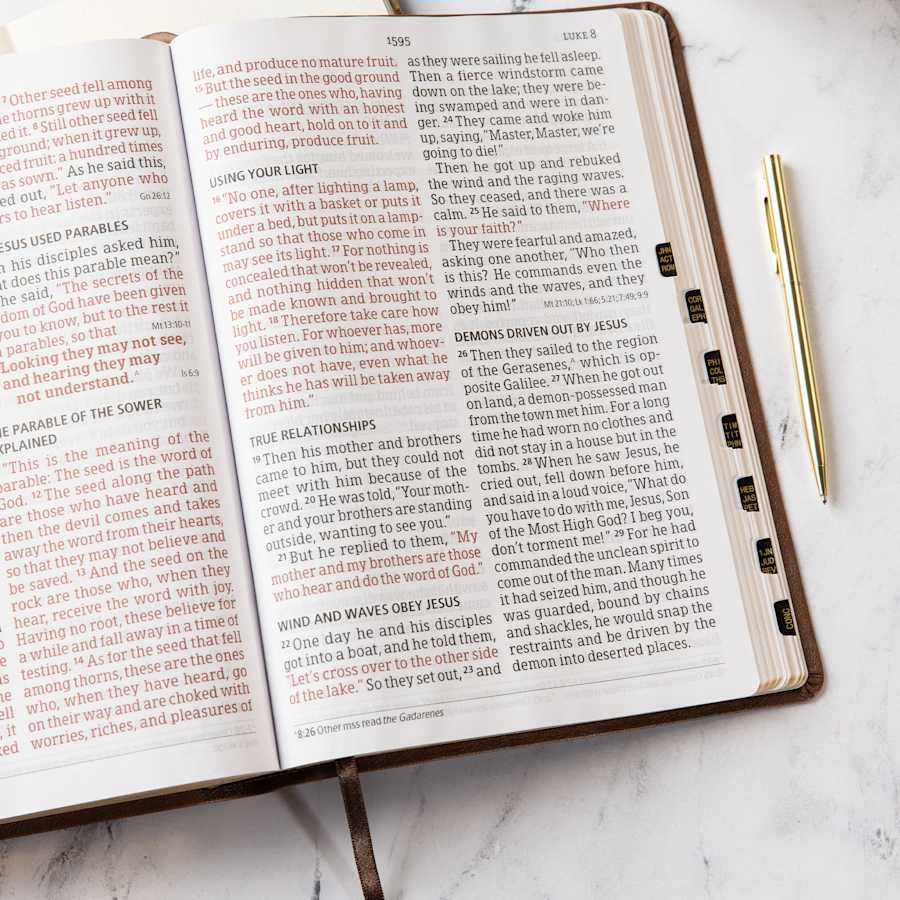 7 Other seed fell among
e thorns grew up with it
ed it. 8 Still other seed fell
ground; when it grew up,
ced fruit: a hundred times
as sown." As he said this,
ed out, "Let anyone who
rs to hear listen." Gn 26:12
ESUS USED PARABLES
n his disciples asked him,
t does this parable mean?"
he said, "The secrets of the
dom of God have been given
you to know, but to the rest it
parables, so that Mt 13:10-11
Looking they may not see,
and hearing they may
not understand.A Is 6:9
E PARABLE OF THE SOWER
XPLAINED
"This is the meaning of the
parable: The seed is the word of
God. 12 The seed along the path
are those who have heard and
then the devil comes and takes
away the word from their hearts,
so that they may not believe and
be saved. 13 And the seed on the
rock are those who, when they
hear, receive the word with joy.
Having no root, these believe for
a while and fall away in a time of
testing. 14 As for the seed that fell
among thorns, these are the ones
who, when they have heard, go
on their way and are choked with
worries, riches, and pleasures of
1595
LUKE 8
life, and produce no mature fruit.
15 But the seed in the good ground
—these are the ones who, having
heard the word with an honest
and good heart, hold on to it and
by enduring, produce fruit.
USING YOUR LIGHT
16 "No one, after lighting a lamp,
covers it with a basket or puts it
under a bed, but puts it on a lamp-
stand so that those who come in
may see its light. 17 For nothing is
concealed that won't be revealed,
and nothing hidden that won't
be made known and brought to
light. 18 Therefore take care how
you listen. For whoever has, more
will be given to him; and whoev-
er does not have, even what he
thinks he has will be taken away
from him."
TRUE RELATIONSHIPS
19 Then his mother and brothers
came to him, but they could not
meet with him because of the
crowd. 20 He was told, "Your moth-
er and your brothers are standing
outside, wanting to see you."
21 But he replied to them, "My
mother and my brothers are those
who hear and do the word of God."
WIND AND WAVES OBEY JESUS
22 One day he and his disciples
got into a boat, and he told them,
"Let's cross over to the other side
of the lake." So they set out, 23 and
as they were sailing he fell asleep.
Then a fierce windstorm came
down on the lake; they were be-
ing swamped and were in dan-
ger. 24 They came and woke him
up, saying, "Master, Master, we're
going to die!"
Then he got up and rebuked
the wind and the raging waves.
So they ceased, and there was a
calm. 25 He said to them, "Where
is your faith?"
They were fearful and amazed,
asking one another, "Who then
is this? He commands even the
winds and the waves, and they
obey him!" Mt 21:10; Lk 1:66; 5:21; 7:49; 9:9
DEMONS DRIVEN OUT BY JESUS
26 Then they sailed to the region
of the Gerasenes,A which is op-
posite Galilee. 27 When he got out
on land, a demon-possessed man
from the town met him. For a long
time he had worn no clothes and
did not stay in a house but in the
tombs. 28 When he saw Jesus, he
cried out, fell down before him,
and said in a loud voice, "What do
you have to do with me, Jesus, Son
of the Most High God? I beg you,
don't torment me!" 29 For he had
commanded the unclean spirit to
come out of the man. Many times
it had seized him, and though he
was guarded, bound by chains
and shackles, he would snap the
restraints and be driven by the
demon into deserted places.
A 8:26 Other mss read the Gadarenes
JHN
ACT
ROM
COR
GAL
EPH
PHI
COL
THS
TIM
TIT
PHN
HEB
JAS
PET
1JN
JUD
REV
CONC